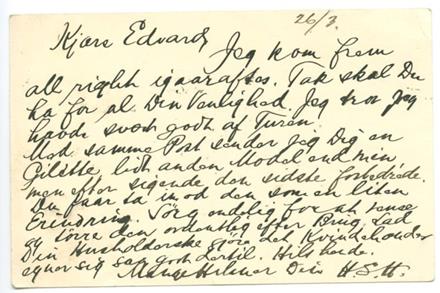 26/3.
Kjære Edvard,
Jeg kom frem
all right igaaraftes. Tak skal Du
ha for al Din Venlighed. Jeg tror jeg
havde svært godt af Turen.
Med samme Post sender jeg Dig en
Gilette, lidt anden Model end min,
men efter sigende den sidste forbedrede.
Du faar ta imod den som en liten
Erindring. Sørg endelig for at rense
og tørre den ordentlig efter Brug. Lad
Din Husholderske gjøre det. Kvindehænder
egner sig saa godt dertil. Hils
Mange Hilsner Din H.S.H.